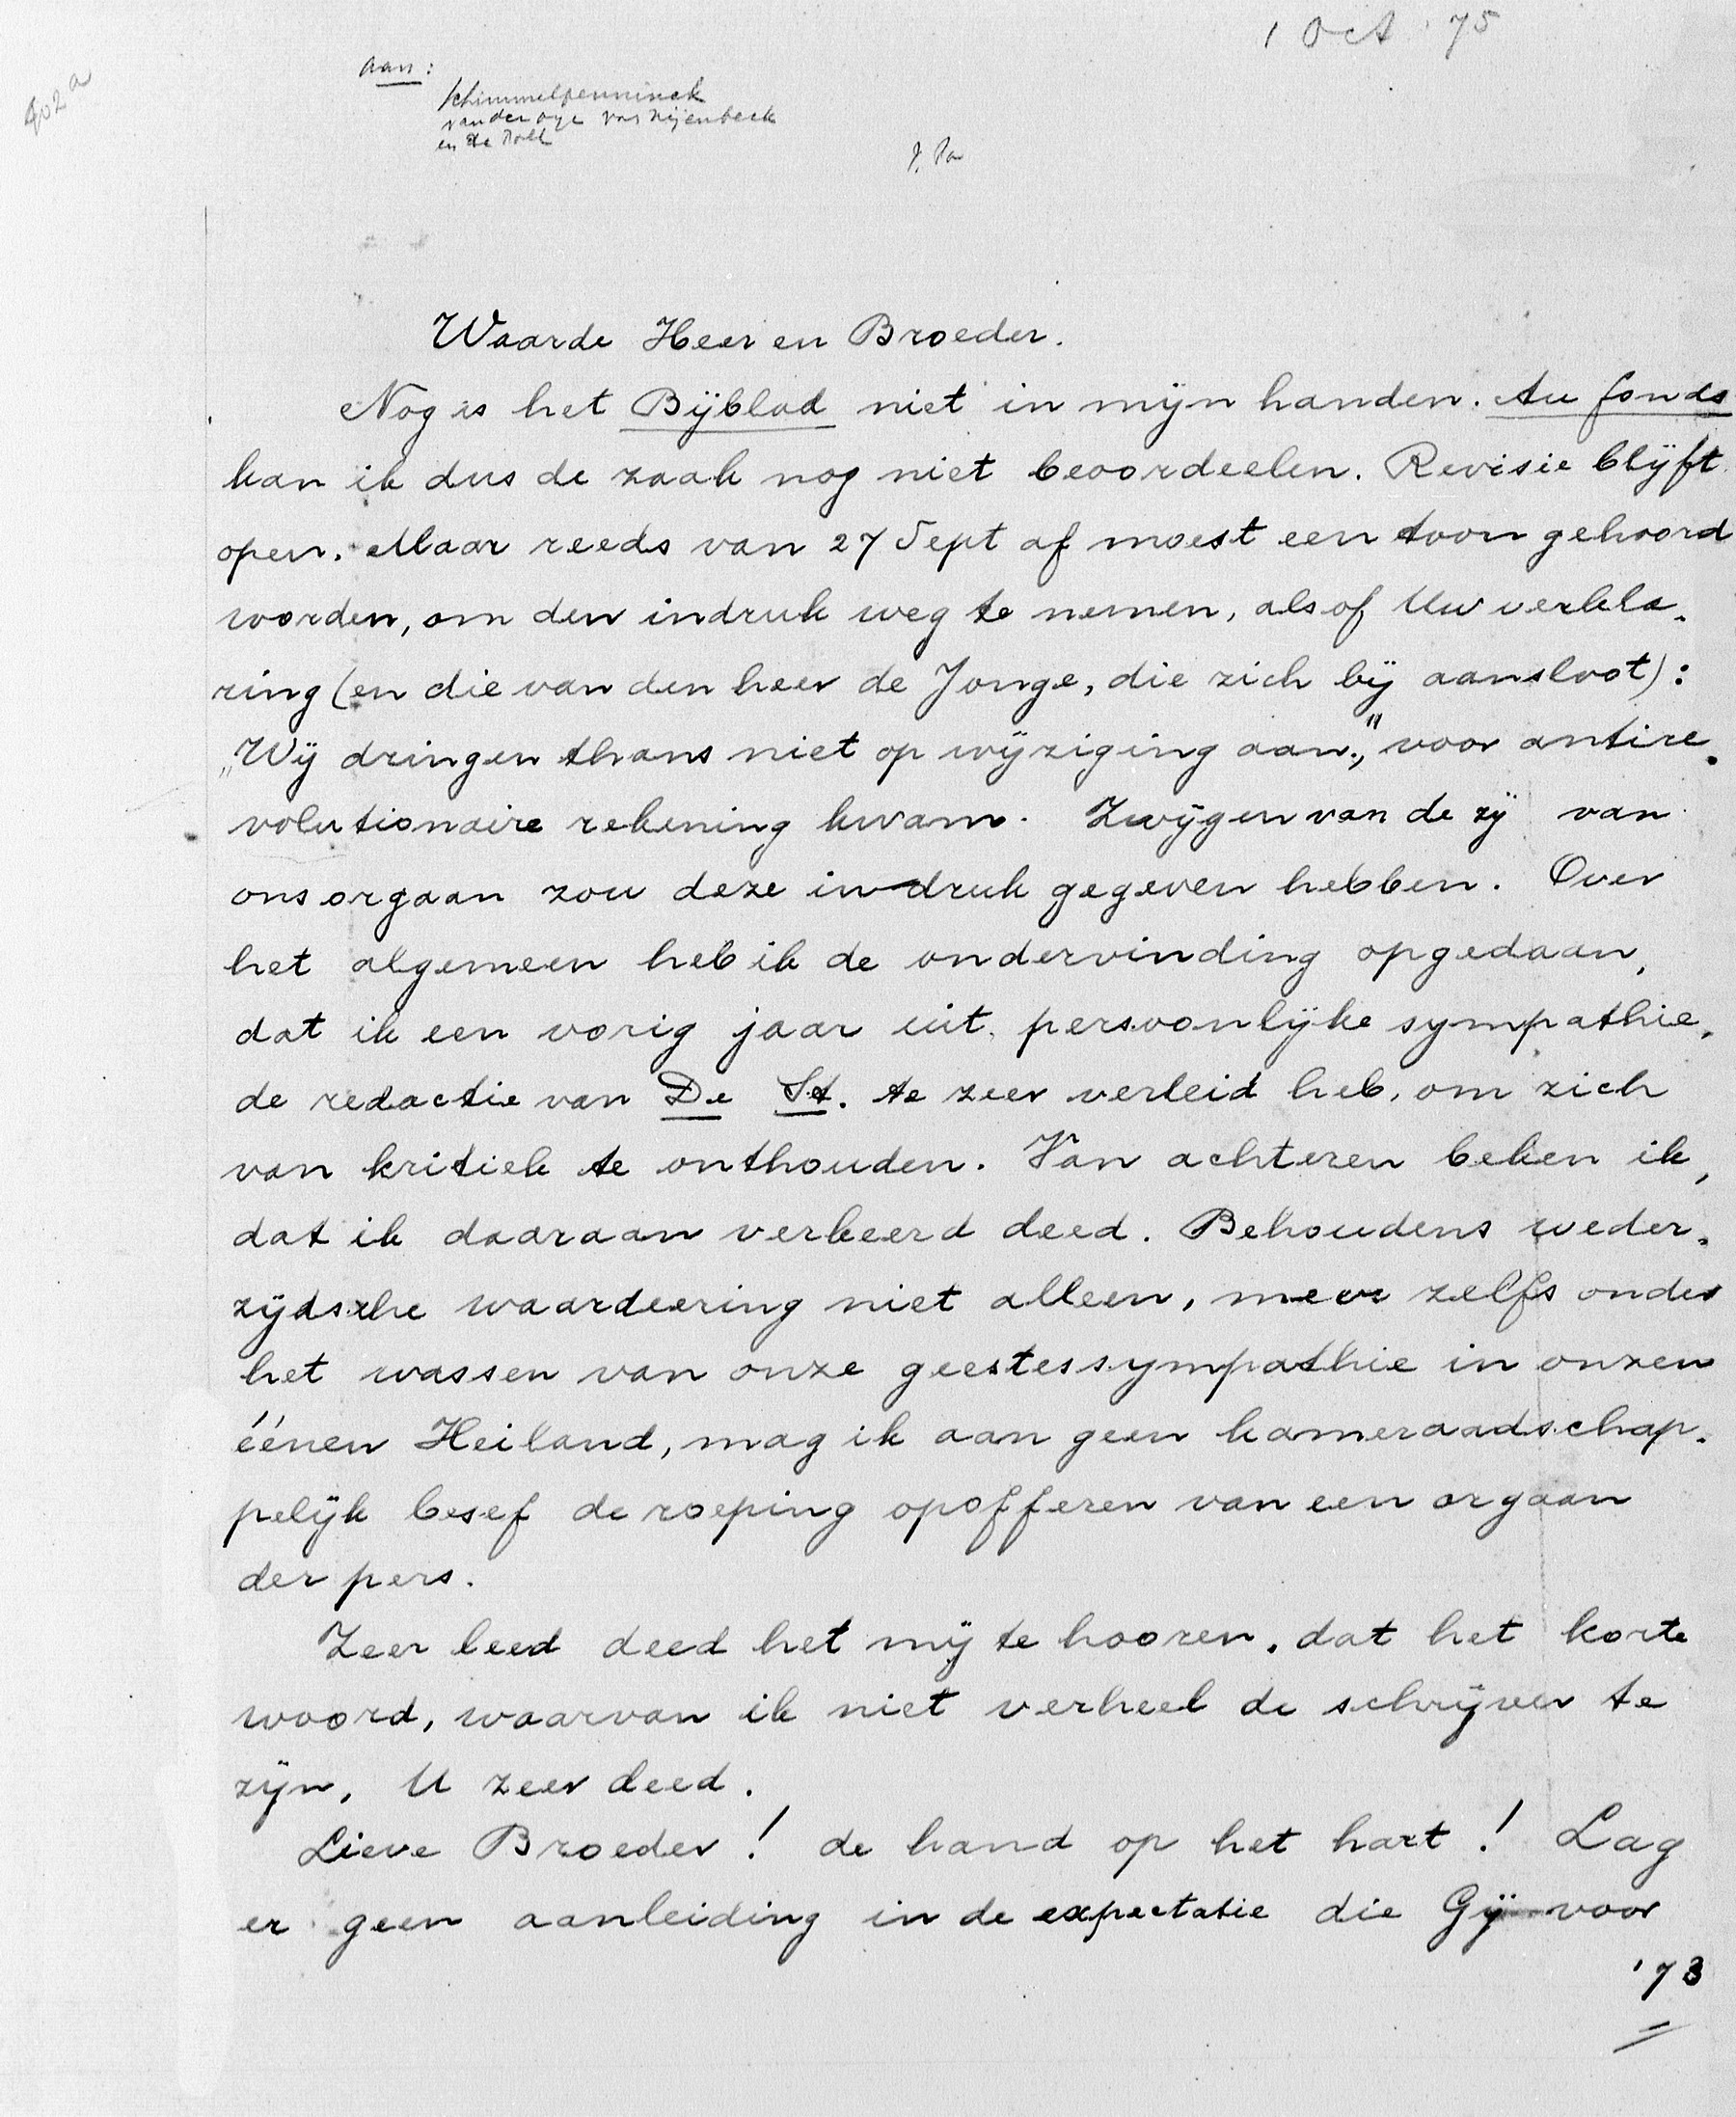 1 Oct '75
402a
Aan:
Schimmelpenninck
van der Oye van Nijenbeek
en de Poll
Waarde Heer en Broeder.
Nog is het Bijblad niet in mijn handen. Au fonds
kan ik dus de zaak nog niet beoordeelen. Revisie blijft
open. Maar reeds van 27 Sept af moest een toon gehoord
worden, om den indruk weg te nemen, alsof Uw verkla-
ring (en die van den heer de Jonge, die zich bij aansloot):
"Wij dringen thans niet op wijziging aan," voor antire-
volutionaire rekening kwam. Zwijgen van de zij van
ons orgaan zou deze indruk gegeven hebben. Over
het algemeen heb ik de ondervinding opgedaan,
dat ik een vorig jaar uit persoonlijke sympathie,
de redactie van De St. te zeer verleid heb, om zich
van kritiek te onthouden. Van achteren beken ik,
dat ik daaraan verkeerd deed. Behoudens weder-
zijdsche waardeering niet alleen, meer zelfs onder
het wassen van onze geestessympathie in onzen
éénen Heiland, mag ik aan geen kameraadschap-
pelijk besef de roeping opofferen van een orgaan
der pers.
Zeer leed deed het mij te hooren, dat het korte
woord, waarvan ik niet verheel de schrijver te
zijn, U zeer deed.
Lieve Broeder! de hand op het hart! Lag
er geen aanleiding in de expectatie die Gij voor
'73